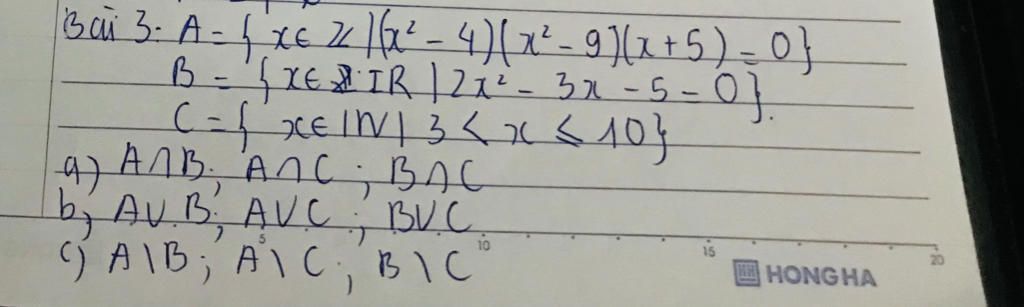 Bài 3. A = { x ∈ Z | (x² - 4)(x² - 9)(x + 5) = 0}
B = { x ∈ IR | 2x² - 3x - 5 = 0}.
C = { x ∈ IN | 3 < x ≤ 10}
a) A∩B; A∩C; B∩C
b, A∪B; A∪C; B∪C
5 10 15 20
c) A\B; A\C; B\C
HONG HA